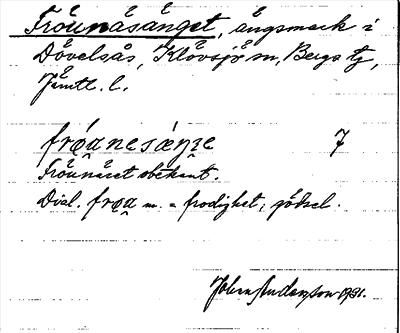 Fröunåsänget, ängsmark i
Dövelsås, Klövsjö sn, Bergs tg,
Jämtl. l.
fröa̭nesæŋ:e 7
Fröunåset obekant.
Dial. frøa̭ m. = frodighet; gödsel.
Johan Andersson 1931.